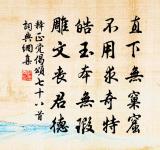 直下無窠窟
不用求奇特
皓玉本無瑕
雕文喪君德
釋正覺偈頌二十八首
詩詞典網集